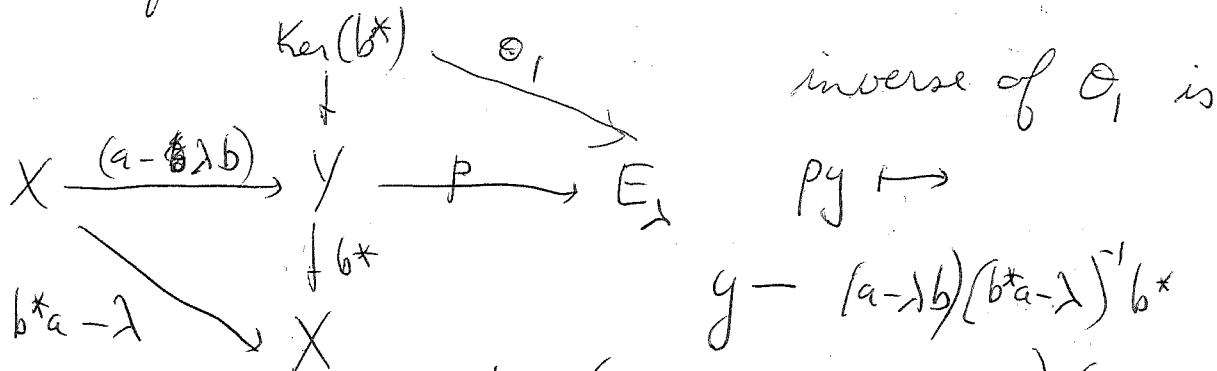 Ker(b*) θ₁ inverse of θ₁ is
X (a-λb) Y p E_λ py ↦
b*
b*a - λ y - (a-λb)(b*a-λ)⁻¹b*
X